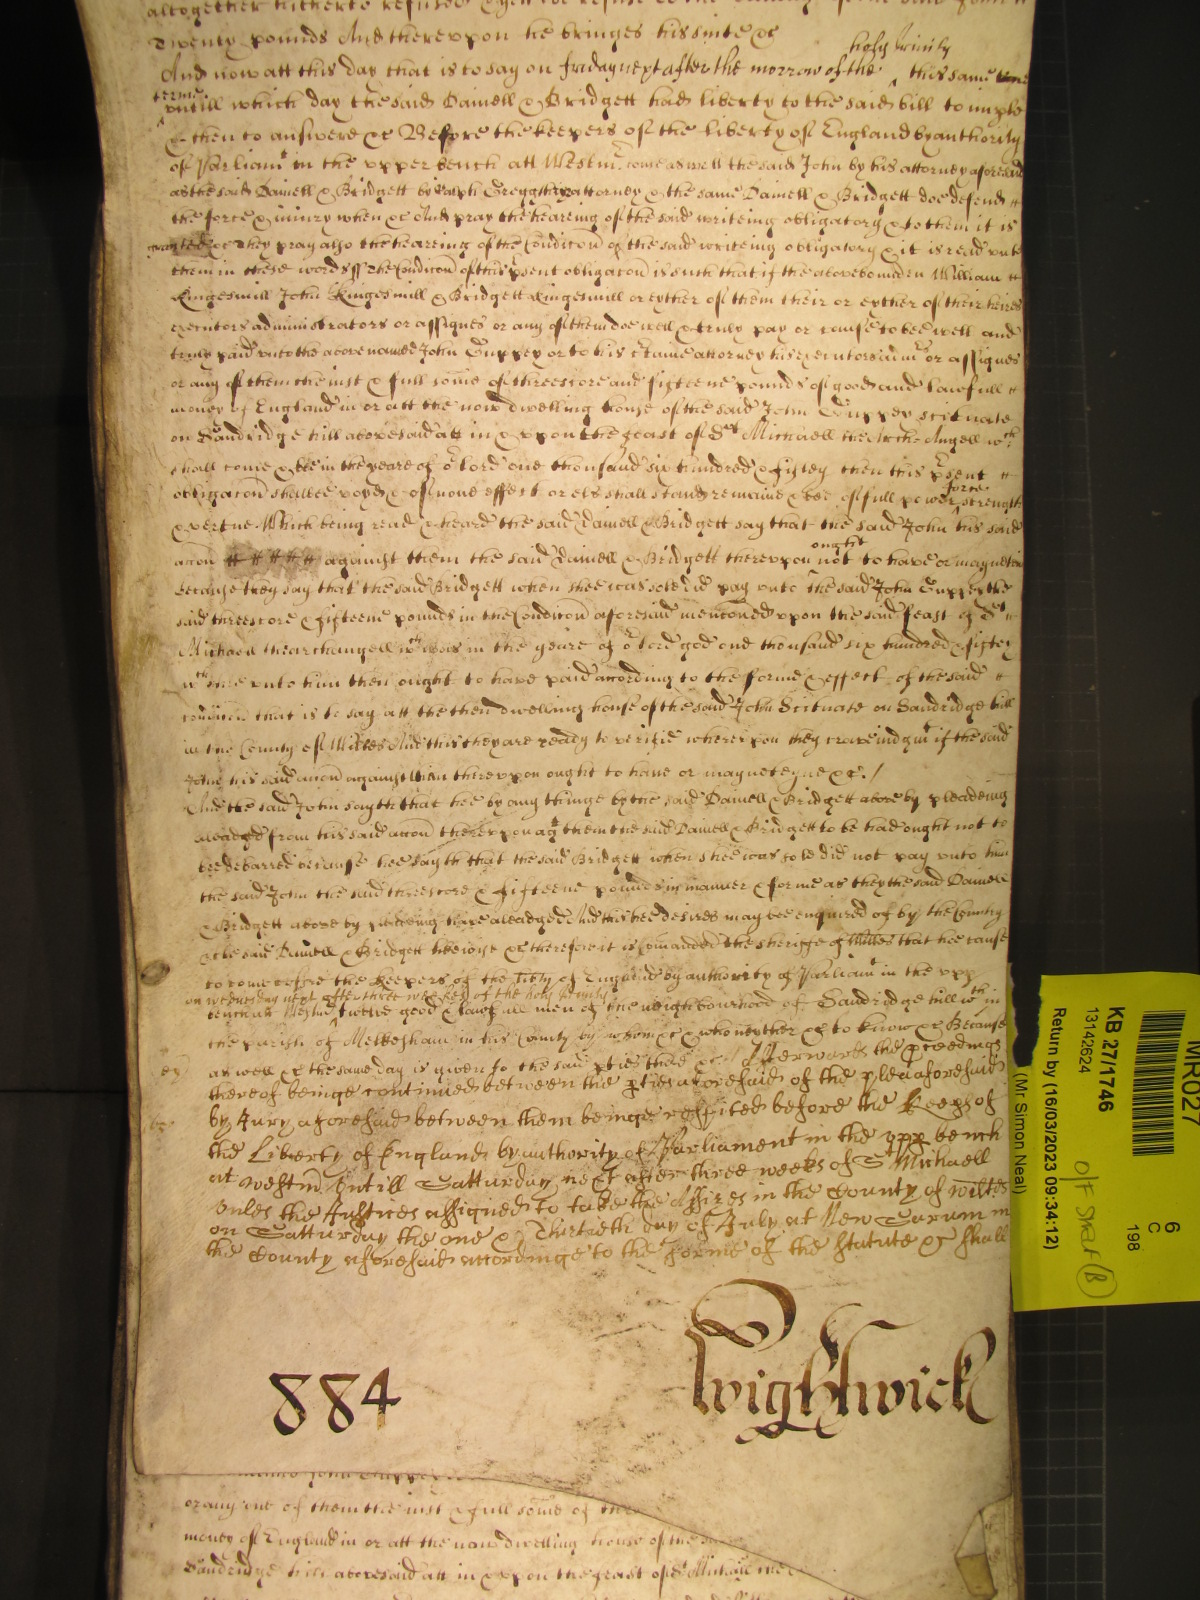 altogether hitherto refused & yet doe refuse to the damage of the said John
Twenty pounds And thereupon he bringes his suite &c
holy Trinity
And now att this day that is to say on friday next after the morrow of the this same
terme
untill which day the said Daniell & Bridgett had liberty to the said bill to imple
& then to answere &c Before the keepers of the liberty of England by authority
of Parliamt in the upper bench att Westmr come aswell the said John by his attorney aforesaid
as the said Daniell & Bridgett by Ralph attorney & the same Daniell & Bridgett doe defend
the force & iniury when &c And pray the heareing of the said writeing obligatory & to them it is
&c They pray also the heareing of the Condicon of the said writeing obligatory & it is read unto
them in these words ss The Condicon of this psent obligacon is such that if the abovebounden William
Kingesmill John Kingesmill & Bridgett Kingesmill or eyther of them their or eyther of their heires
executors administrators or assignes or any of them doe well & truly pay or cause to bee well and
truly paid unto the abovenamed John Guppey or to his ctaine attorney his executors admrs or assignes
or any of them the iust & full some of threescore and fifteene pounds of good and lawfull
money of England in or att the now dwelling house of the said John Guppey scituate
on Sandridge hill abovesaid att in & upon the feast of St Michaell the Arche Angell wch
shall come & bee in the yeare of or Lord one thousand six hundred & fiftey then this psent
obligacon shalbee voyd & of none effect or els shall stand remaine & bee of full power force strength
& vertue Which being read & heard the said Daniell & Bridgett say that the said John his said
accon against them the said Daniell & Bridgett thereupon ought not to have or mayneteine
because they say that the said Bridgett when shee was sole did pay unto the said John Guppey the
said threescore & fifteene pounds in the Condicon aforesaid menconed upon the said feast of St
Michaell thearchangell wch was in the yeare of or Lord god one thousand six hundred & fiftey
wch shee unto him then ought to have paid according to the forme & effect of the said
condicon that is to say att the then dwelling house of the said John Scituate on Sandridge hill
in the County of Wiltes And this they are ready to verifie whereupon they crave iudgmt if the said
John his said accon against them thereupon ought to have or mayneteyne &c /
And the said John sayth that hee by any thinge by the said Daniell & Bridgett above by pleadeing
aleadged from his said accon thereupon agt them the said Daniell & Bridgett to be had ought not to
bee debarred because hee sayth that the said Bridgett when shee was sole did not pay unto him
the said John the said threescore & fifteene pounds in manner & forme as they the said Daniell
& Bridgett above by pleadeing have aleadged And this hee desires may bee enquired of by the Country
& the said Daniell & Bridgett likewise &c therefore it is comanded the sheriffe of Wiltes that hee cause
to come before the keepers of the libty of England by authority of Parliamt in the upp
on wednesday next after three weekes of the holy trinity
bench att Westmr twelve good & lawfull men of the neighbourhood of Sandridge hill wth in
the parish of Melkesham in his County by whom &c & who neyther &c to know &c Because
as well &c the same day is given to the said pties there &c / Afterwards the pceedings
thereof beinge continued betweene the pties aforesaid of the plea aforesaid
by Jury aforesaid between them beinge respited before the keeps of
the Liberty of England by authority of Parliament in the upp bench
at westmr Untill Satturday next after three weeks of St Michaell
unles the Justices assigned to take the Assizes in the County of wiltes
on Satturday the one & Thirtieth day of July at New Sarum in
the County aforesaid accordinge to the forme of the statute &c shall
884
Wightwick
or any one of them the iust & full some of
money of England in or att the now dwelling house of the
Sandridge hill abovesaid att in & upon the feast of St Michaell
MR027
KB 27/1746
13142624
Return by (16/03/2023 09:34:12)
(Mr Simon Neal)
6
C
198